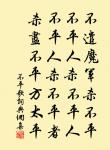 不遣魔军杀不平
不平人杀不平人
不平人杀不平者
杀尽不平方太平
不平歌词典网集